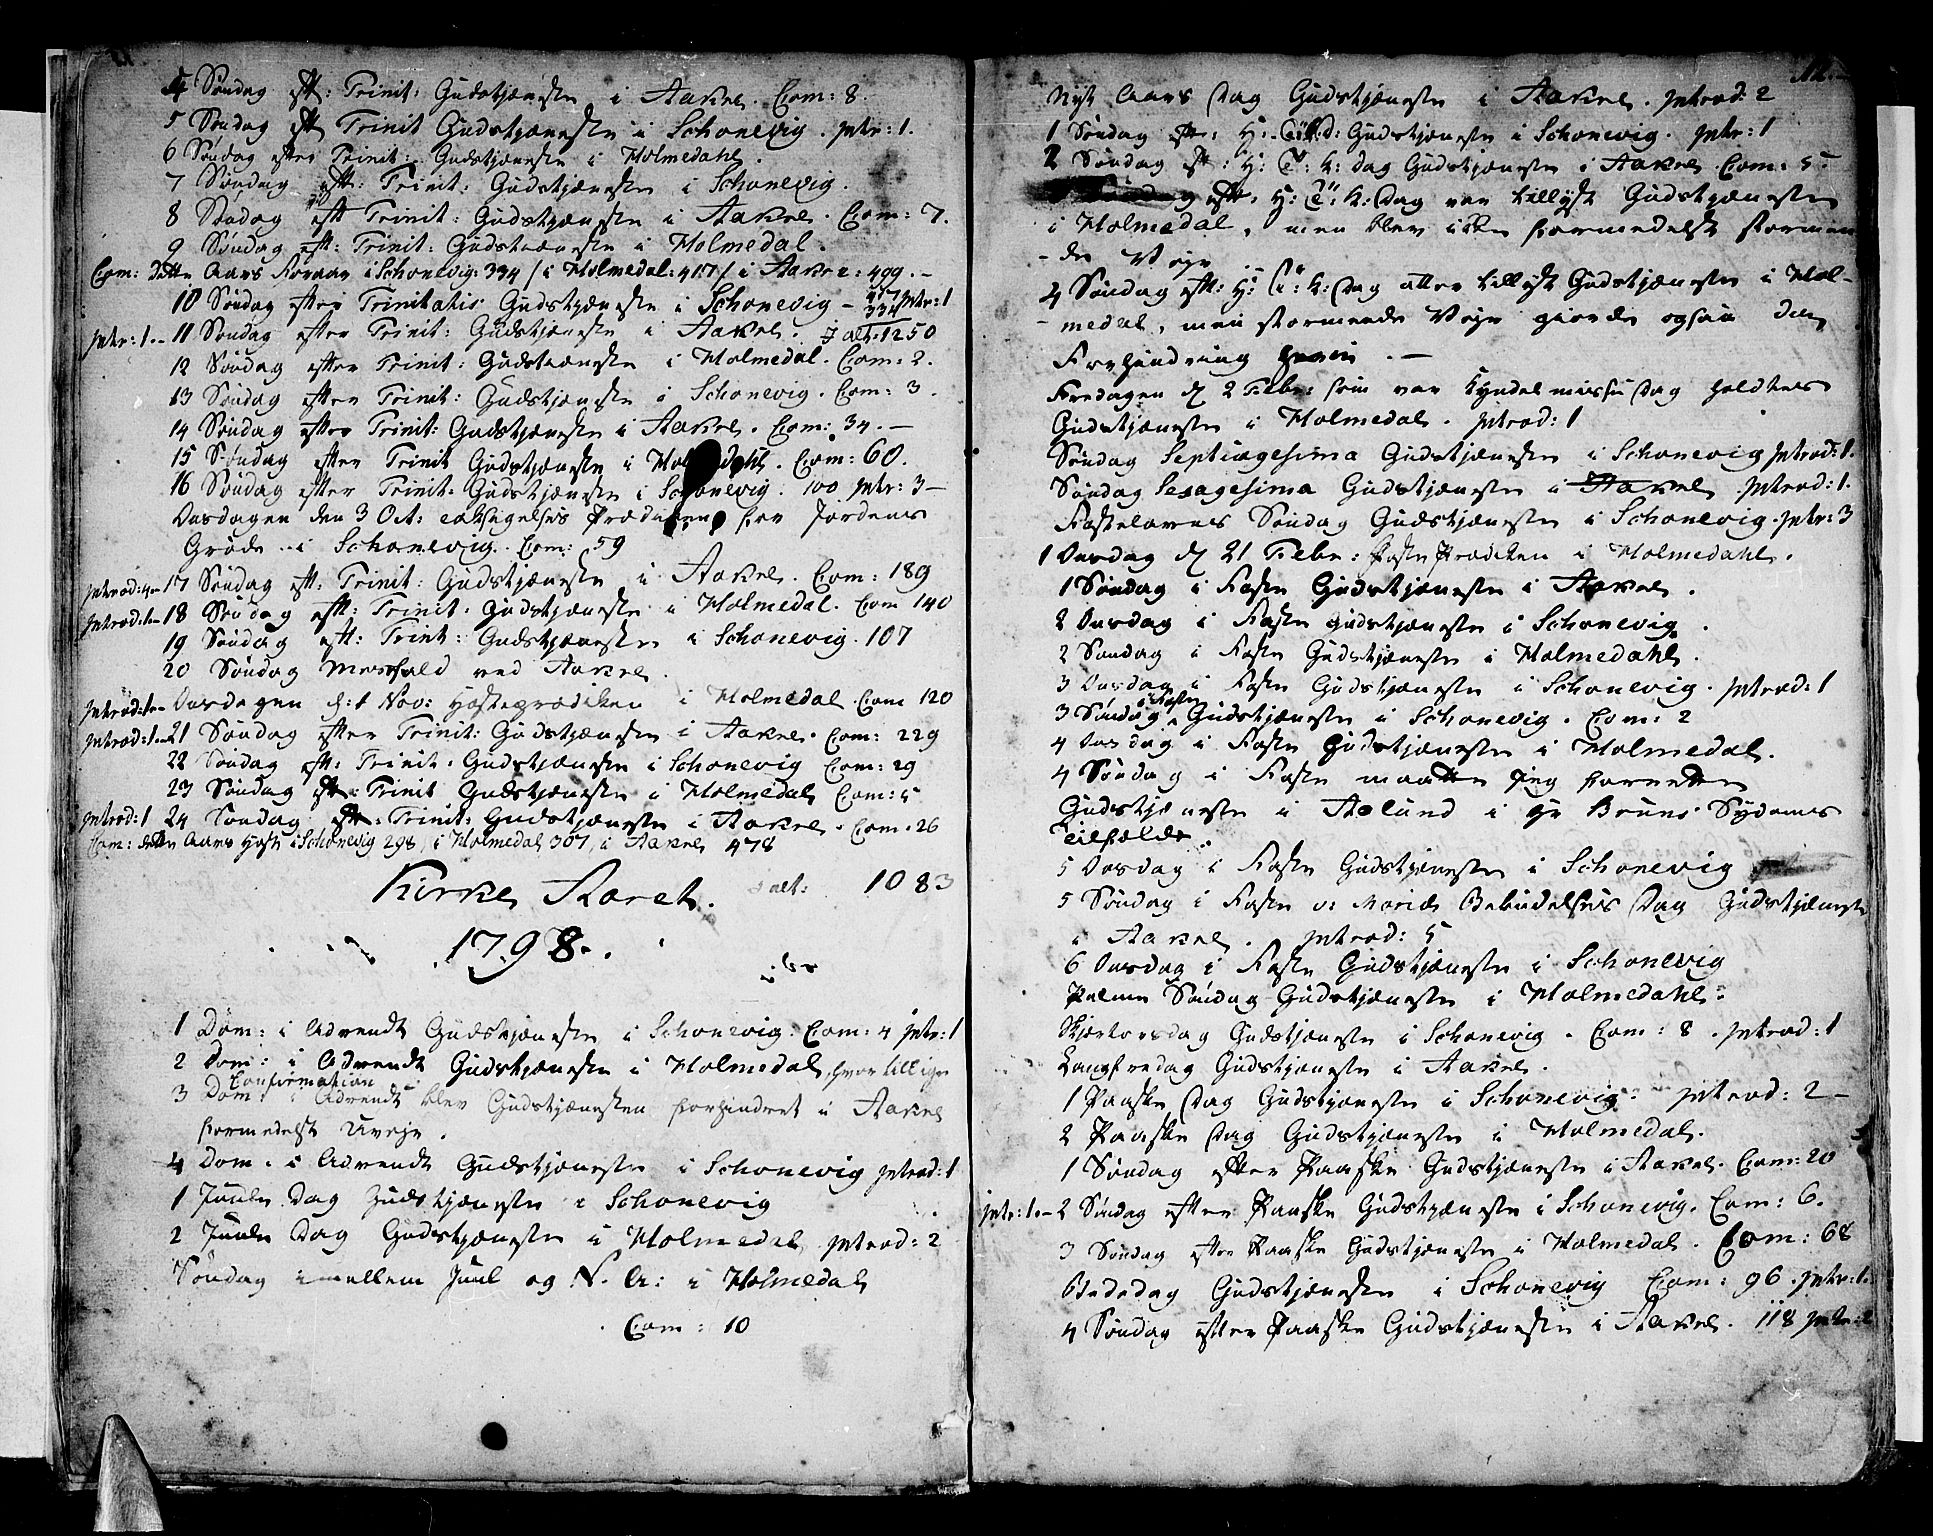 4 Søndag eft: Trinit: Gudstjæneste i Aakre. Com: 8.
5 Søndag eft Trinit Gudstjæneste i Schonevig. Intr: 1.
6 Søndag efter Trinit: Gudstjæneste i Holmedahl.
7 Søndag eft: Trinit: Gudstjæneste i Schonevig.
8 Søndag eft Trinit: Gudstjæneste i Aakre. Com: 7.
9 Søndag eft: Trinit: Gudstjæneste i Holmedal.
Com: dette Aars Foraar i Schonevig: 334 / i Holmedal: 417 / i Aakre: 499. –
10 Søndag efter Trinitatis Gudstjæneste i Schonevig – 334 Intr: 1
Intr: 1.– 11 Søndag efter Trinit: Gudstjæneste i Aakre. I alt. 1250
12 Søndag efter Trinit: Gudstjæneste i Holmedal. Com: 2.
13 Søndag efter Trinit: Gudstjæneste i Schonevig. Com: 3.
14 Søndag efter Trinit: Gudstjæneste i Aakre. Com: 34. –
15 Søndag efter Trinit Gudstjæneste i Holmedahl. Com: 60.
16 Søndag efter Trinit: Gudstjæneste i Schonevig. 100 Intr: 3 –
Onsdagen den 3 Oct: Taksigelses Prædiken for Jordens
Grøde i Schonevig. Com: 59
Introd: 4 – 17 Søndag eft: Trinit: Gudstjæneste i Aakre. Com: 189
Introd: 1 – 18 Søndag eft: Trinit: Gudstjæneste i Holmedal. Com 140
19 Søndag eft: Trint: Gudstjæneste i Schonevig. 107
20 Søndag Messfald ved Aakre.
Introd: 1 – Onsdagen d: 1 Nov: Høstprædiken i Holmedal. Com 120
Introd: 1 – 21 Søndag efter Trinit: Gudstjæneste i Aakre. Com: 229
22 Søndag eft: Trinit. Gudstjæneste i Schonevig Com: 29
23 Søndag eft: Trinit Gudstjæneste i Holmedal Com: 5
Introd: 1 24 Søndag eft: Trinit: Gudstjæneste i Aakre. Com: 26
Com: dette Aars Høst i Schonevig 298, i Holmedal 307, i Aakre 478
Kirke Aaret. i alt: 1083
1798.
1 Dom: i Advendt Gudstjæneste i Schonevig: Com: 4 Intr: 1
2 Dom: i Advendt Gudstjæneste i Holmedal, hvor tillige
Confirmation
3 Dom: i Advendt blev Gudstjænesten forhindret i Aakre
formedelst Uvejr.
4 Dom. i Advendt Gudstjæneste i Schonevig Introd: 1
1 Juule Dag Gudstjæneste i Schonevig
2 Juule Dag Gudstjæneste i Holmedal Introd: 2
Søndag imellem Juul og N. A: i Holmedal
Com: 10
Nyt Aars Dag Gudstjæneste i Aakre. Introd: 2
1 Søndag eft: H: Gudstjæneste i Schonevig. Intr: 1
2 Søndag eft: H: T: K: Dag Gudstjæneste i Aakre Com: 5
Søndag eft: H: T: K: Dag var tillyst Gudstjæneste
i Holmedal, men blev ikke formedelst stormen
de Vejr
4 Søndag eft: H: T: K: Dag atter tillyst Gudstjæneste i Hol-
medal, men stormende Vejr giorde ogsaa den
Forhindring
Fredagen d 2 Febr: som var Kyndelmisse Dag holdtes
Gudstjæneste i Holmedal. Introd: 1
Søndag Septuagesima Gudstjæneste i Schonevig Introd: 1.
Søndag Sexagesima Gudstjæneste i Aakre Introd: 1.
Fastelavns Søndag Gudstjæneste i Schonevig. Intr: 3
1 Onsdag d 21 Febr: Faste Prædiken i Holmedahl.
1 Søndag i Faste Gudstjæneste i Aakre.
2 Onsdag i Faste Gudstjæneste i Schonevig.
2 Søndag i Faste Gudstjæneste i Holmedahl.
3 Onsdag i Faste Gudstjæneste i Schonevig. Introd: 1
3 Søndag i Faste Gudstjæneste i Schonevig. Com: 2
4 Onsdag i Faste Gudstjæneste i Holmedal.
4 Søndag i Faste maatte jeg forrette
Gudstjæneste i Ølund i Hr Bruns Sygdoms
Tilfælde.
5 Onsdag i Faste Gudstjæneste i Schonevig
5 Søndag i Faste o: Mariæ Bebudelses Dag Gudstjæneste
i Aakre. Introd: 5
6 Onsdag i Faste Gudstjæneste i Schonevig
Palme Søndag Gudstjæneste i Holmedahl:
Skjertorsdag Gudstjæneste i Schonevig. Com: 8. Introd: 1
Langfredag Gudstjæneste i Aakre.
1 Paaske Dag Gudstjæneste i Schonevig: Introd: 2 –
2 Paaske Dag Gudstjæneste i Holmedal.
1 Søndag efter Paaske Gudstjæneste i Aakre. Com: 20
Intr: 1.– 2 Søndag efter Paaske Gudstjæneste i Schonevig. Com: 6.
3 Søndag efter Paaske Gudstjæneste i Holmedal. Com: 68
Bededag Gudstjæneste i Schonevig Com: 96. Intr: 1.
4 Søndag efter Paaske Gudstjæneste i Aakre. 118 Intr: 2